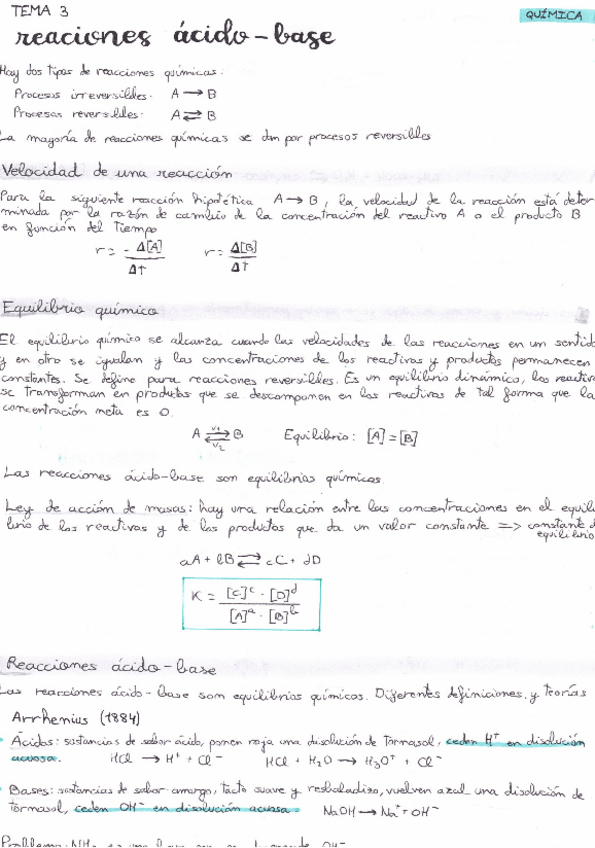 TEMA 3
QUÍMICA
reaciones ácido-base
Hay dos tipos de reacciones químicas.
Procesos irreversibles. A → B
Procesos reversibles: A ⇄ B
La mayoría de reacciones químicas se dan por procesos reversibles
Velocidad de una reacción
Para la siguiente reacción hipotética A → B, la velocidad de la reacción está deter
minada por la razón de cambio de la concentración del reactivo A o el producto B
en función del Tiempo
r = - Δ[A] / Δt r = Δ[B] / Δt
Equilibrio químico
El equilibrio químico se alcanza cuando las velocidades de las reacciones en un sentido
y en otro se igualan y las concentraciones de los reactivos y productos permanecen
constantes. Se define para reacciones reversibles. Es un equilibrio dinámico, los reactiv
se transforman en productos que se descomponen en los reactivos de tal forma que la
concentración neta es 0.
A ⇄ B Equilibrio: [A] = [B]
v1
v2
Las reacciones ácido-base son equilibrios químicos
Ley de acción de masas: hay una relación entre las concentraciones en el equili
brio de los reactivos y de los productos que da un valor constante => constante d
equilibrio
aA + bB ⇄ cC + dD
K = [C]ᶜ · [D]ᵈ / [A]ᵃ · [B]ᵇ
Reacciones ácido-base
Las reacciones ácido-base son equilibrios químicos. Diferentes definiciones y teorías
Arrhenius (1884)
Ácidos: sustancias de sabor ácido, ponen roja una disolución de Tornasol, ceden H⁺ en disolución
acuosa. HCl → H⁺ + Cl⁻ HCl + H₂O → H₃O⁺ + Cl⁻
Bases: sustancias de sabor amargo, tacto suave y resbaladizo, vuelven azul una disolución de
Tornasol, ceden OH⁻ en disolución acuosa NaOH → Na⁺ + OH⁻
Problema: NH₃ es una